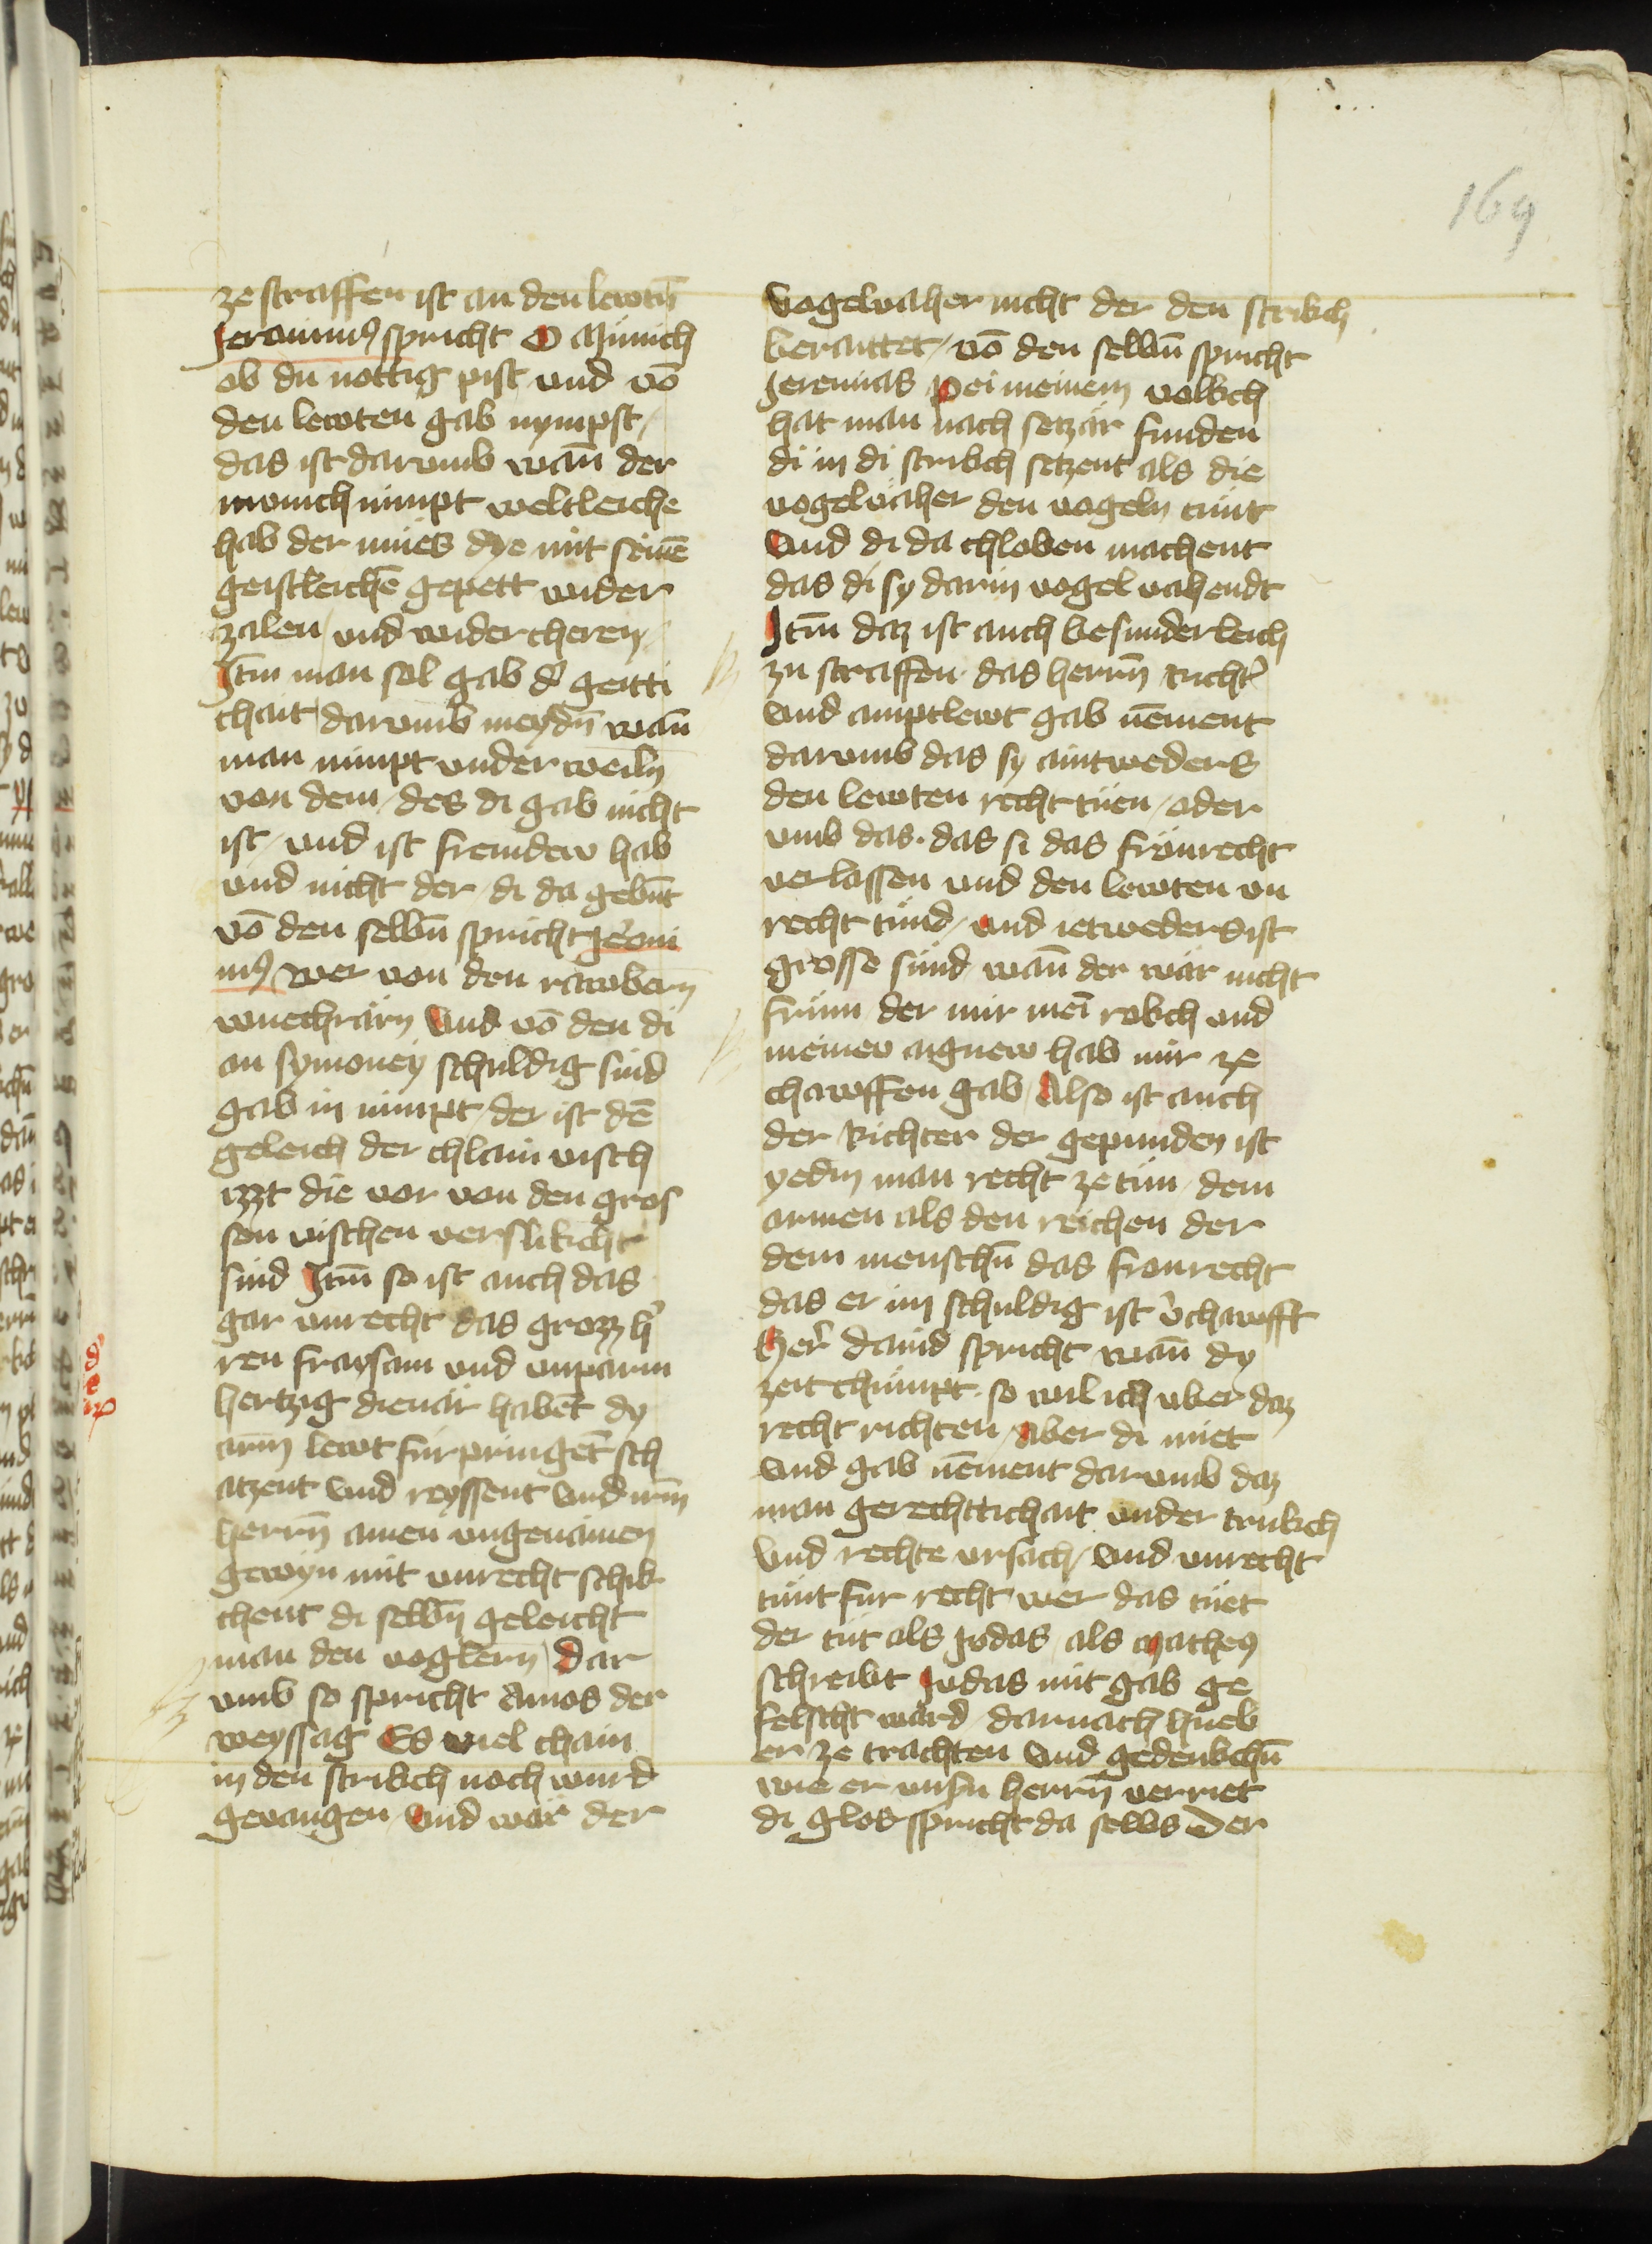 169
ze straffen ist an den lewtn̄
Jeronimus spricht O Münich
ob du nottig pist und vō
den lewten gab nympst /
das ist darumb wañ der
monich nimpt weltleiche
hab der mües dye mit seinē
geistleichē gepett wider
zalen / und wider cheren
Jtm̄ man sol gab der geitti
chait darumb meydn̄ wañ
man nimpt under weiln
von dem / des di gab nicht
ist / und ist fremdew hab
und nicht der / di da gebn̄t
vō den selbn̄ spricht Jeroni
mus wer von den rawbern̄
wuechrärn Und vō den di
an symoney schuldig sind
gab in nimpt / der ist dē
geleich der chlain visch
izzt die vor von den gros
sen vischen verslikcht
sind Jtm̄ so ist auch das
gar unrecht das grozz h̕
ren fraysam und unparm
hertzig dienär habēt dy
arm̄ lewt fürpringēt sch
atzent und reyssent und irm̄
herrn̄ ainen ungenämen
gewyn mit unrecht schik
chent di selbn̄ geleicht
man den voglern̄ Dar
umb so spricht Amos der
weyssag Es viel chain
in den strikch noch wurd
gevangen / Und wär der
Vogelvaher nicht der den strikch
beraittet / vō den selbn̄ spricht
Jeremias Pei meinem volkch
hat man nach setzär funden
di in di strikch setzent als die
vogelvaher den vogeln tünt
Und di da chloben machent
das di sy darin vogel vahendt
Jtm̄ daz ist auch besunderleich
zu straffen · das herrn̄ Richt̕
und amptlewt gab nēment
darumb das sy aintweders
den lewten recht tüen / oder
umb das · das si das frönrecht
verlassen und den lewten un
recht tünd / Und ietweders ist
grosse sünd wañ der wär nicht
frum der mir mei̅ rokch und
meinew aignew hab mir ze
chawffen gab / Also ist auch
der Richter der gepunden ist
yedm man recht ze tün / dem
armen als den reichen der
dem menschn̄ das fronrecht
das er im schuldig ist v̕chawfft
Her̕ david spricht wañ dy
zeit chümpt · so wil ich uber daz
recht richten / Aber di miet
und gab nēment darumb daz
man gerechttichait under trukch
und rechte ursach / und unrecht
tünt fur recht wer das tüet
der tüt als Judas / als Matheus
schreibt Judas mit gab ge
felscht ward / darnach hueb
er ze trachten und gedenkchn̄
wie er unsn̄ herrn̄ verriet
di glos spricht da selbs Der